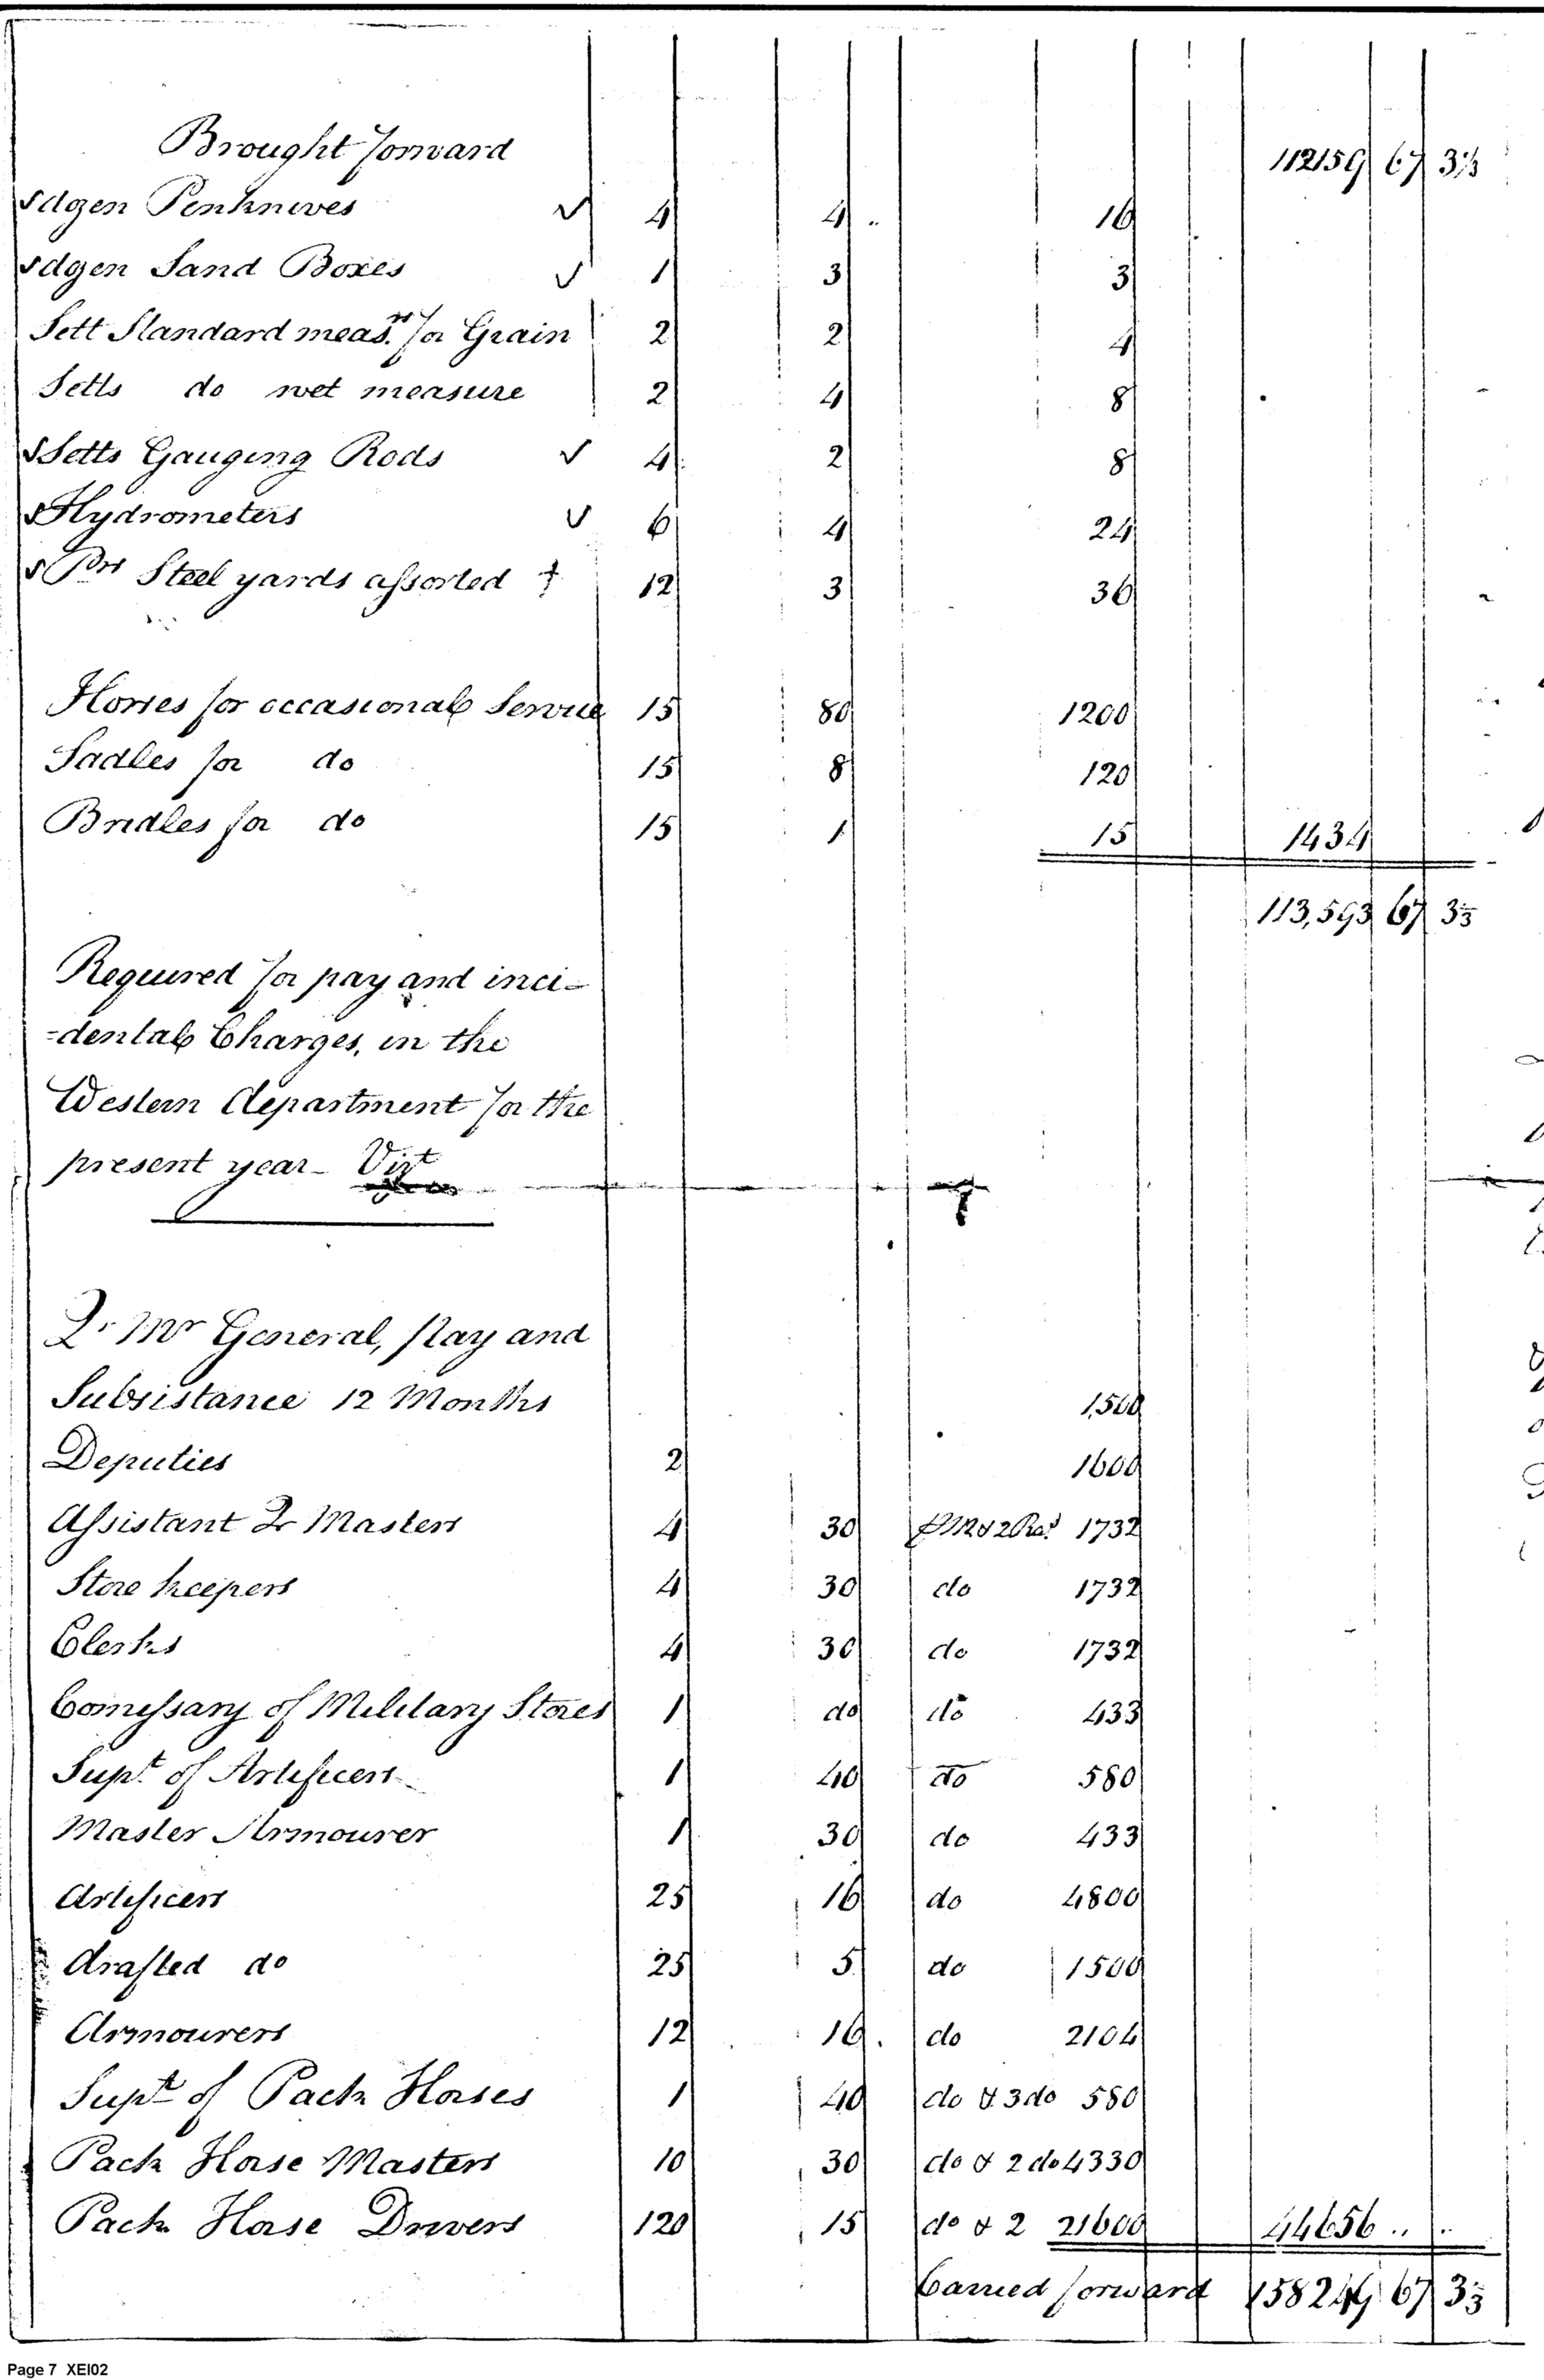 Brought forward 112159 67 3⅓
dozen Penknives ✓ 4 4 16
dozen Sand Boxes ✓ 1 3 3
Sett Standard meas.rs for Grain 2 2 4
Setts do wet measure 2 4 8
Setts Gauging Rods ✓ 4 2 8
Hydrometers ✓ 6 4 24
Prs Steel yards assorted † 12 3 36
Horses for occasional Service 15 80 1200
Sadles for do 15 8 120
Bridles for do 15 1 15 1434
113,593 67 3⅓
Required for pay and inci=
=dental Charges, in the
Western department for the
present year – Vizt
Qr Mr General, pay and
Subsistance 12 Months 1,500
Deputies 2 1600
Assistant Qr Masters 4 30 & 2 Ras 1732
Store keepers 4 30 do 1732
Clerks 4 30 do 1732
Comissary of Military Stores 1 do do 433
Supt of Artificers 1 40 do 580
Master Armourer 1 30 do 433
Artificers 25 16 do 4800
drafted do 25 5 do 1500
Armourers 12 16 do 2104
Supt of Pack Horses 1 40 do & 3 do 580
Pack Horse Masters 10 30 do & 2 do 4330
Pack Horse Drivers 120 15 do & 2 21600 44656 .. ..
Carried forward 158249 67 3⅓
Page 7 XEI02